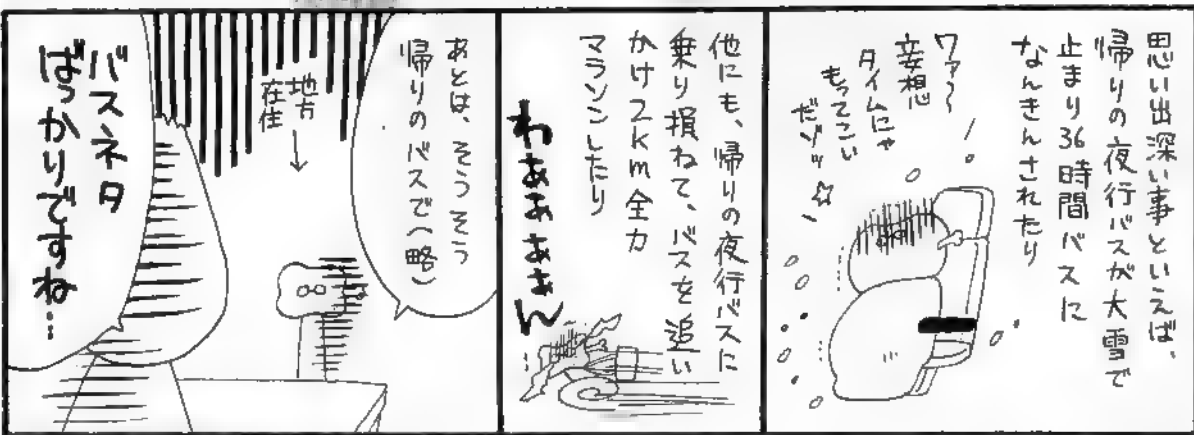 思い出深い事といえば、
帰りの夜行バスが大雪で
止まり36時間バスに
なんきんされたり
ワァ〜
妄想
タイムにゃ
もってこい
だゾッ☆
他にも、帰りの夜行バスに
乗り損ねて、バスを追い
かけ2km全力
マラソンしたり
わぁぁぁぁぁん
あとは、そうそう
帰りのバスで(略)
地方
在住
バスネタ
ばっかりですね…